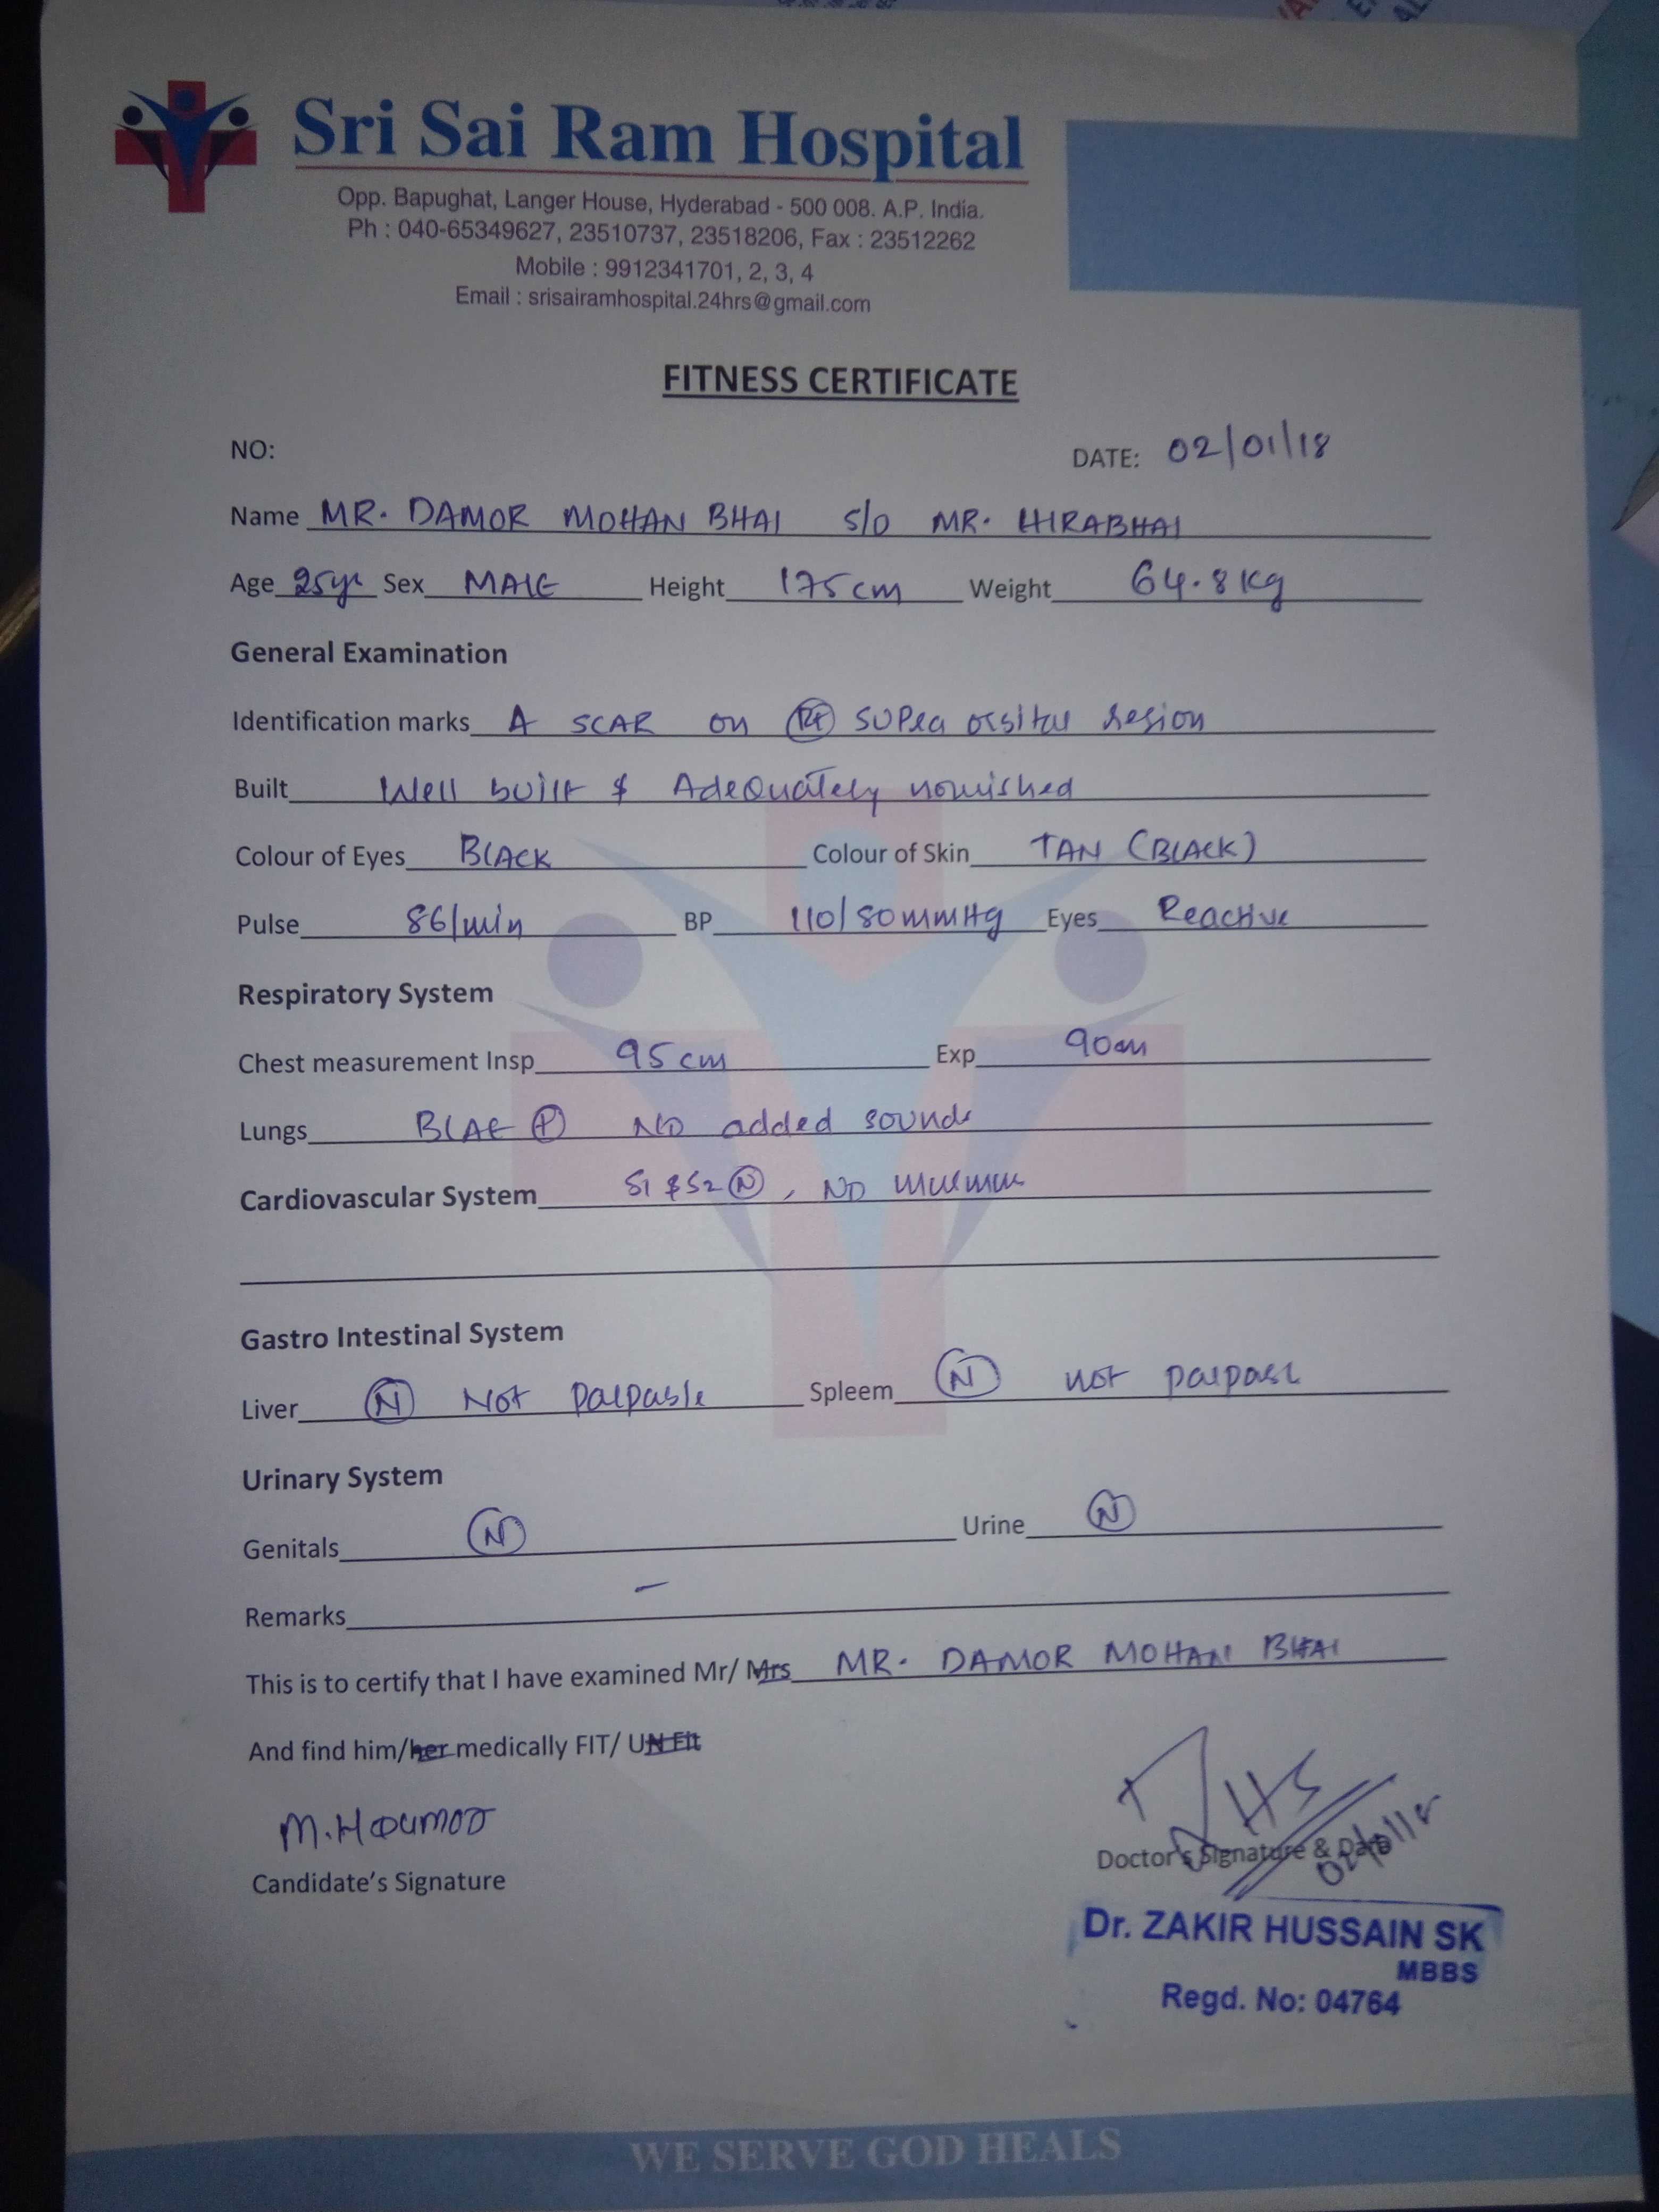 Sri Sai Ram Hospital
Opp. Bapughat, Langer House, Hyderabad - 500 008. A.P. India.
Ph : 040-65349627, 23510737, 23518206, Fax : 23512262
Mobile : 9912341701, 2, 3, 4
Email : srisairamhospital.24hrs@gmail.com
FITNESS CERTIFICATE
NO: DATE: 02/01/18
Name MR. DAMOR MOHAN BHAI S/O MR. HIRABHAI
Age 25yr Sex MALE Height 175 cm Weight 64.8 Kg
General Examination
Identification marks A SCAR on Rt supra orbital region
Built Well built & Adequately nourished
Colour of Eyes BLACK Colour of Skin TAN (BLACK)
Pulse 86/min BP 110/80 mmHg Eyes Reactive
Respiratory System
Chest measurement Insp 95 cm Exp 90cm
Lungs BLAE P NO added sounds
Cardiovascular System S1 & S2 N, NO murmur
Gastro Intestinal System
Liver N Not palpable Spleem N not palpabl
Urinary System
Genitals N Urine N
Remarks –
This is to certify that I have examined Mr/ Mrs MR. DAMOR MOHAN BHAI
And find him/her medically FIT/ UN Fit
Candidate's Signature
Doctor's Signature & Date
02/01/18
Dr. ZAKIR HUSSAIN SK
MBBS
Regd. No: 04764
WE SERVE GOD HEALS